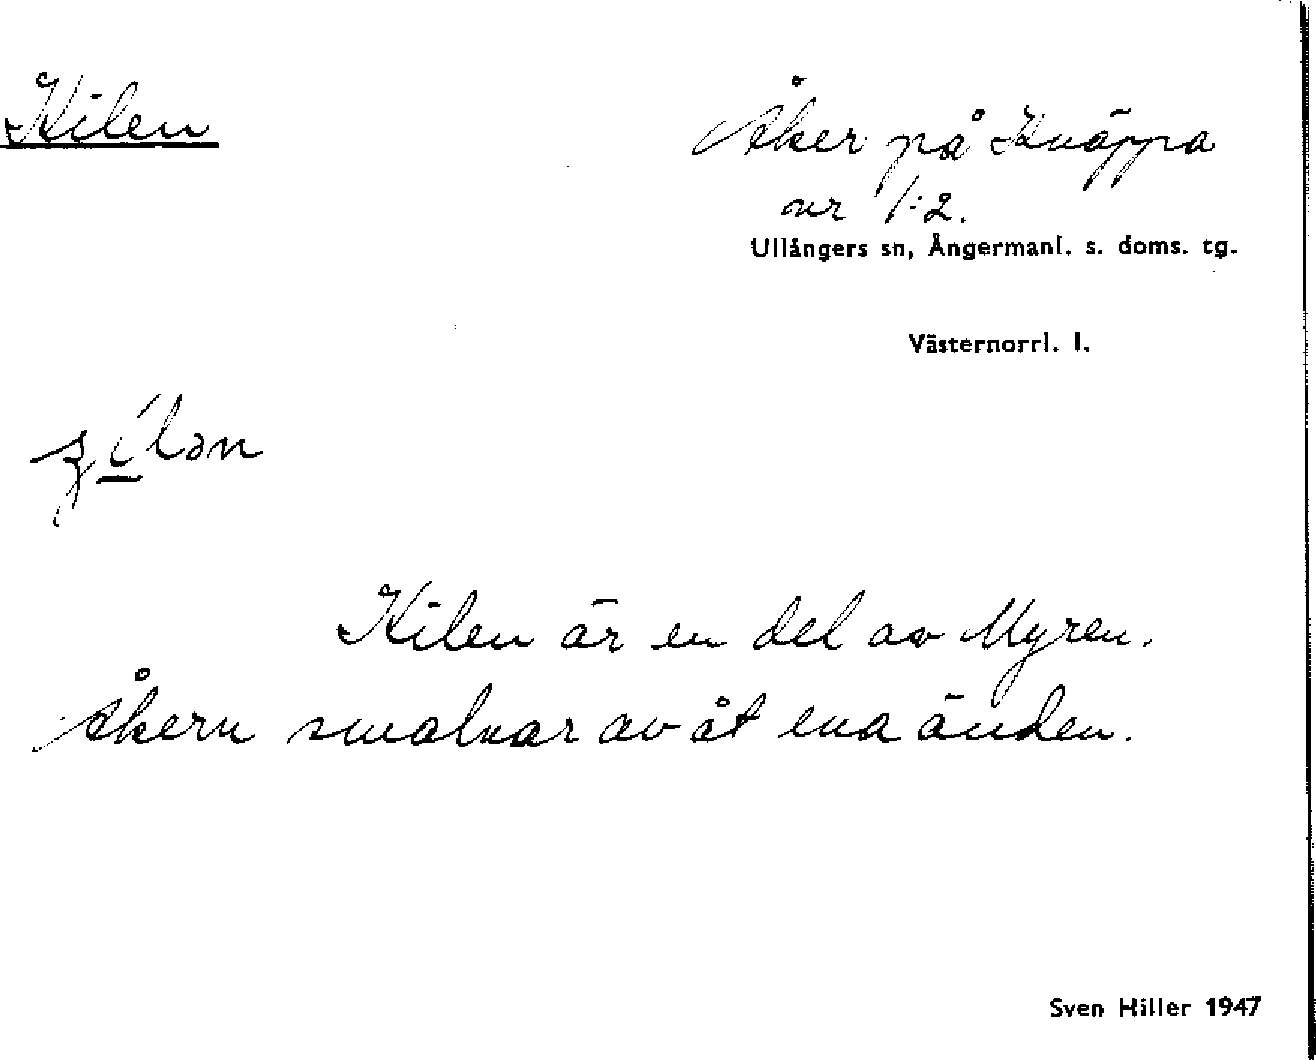 Kilen
Åker på Knäppa
nr 1:2.
Ullångers sn, Ångermanl. s. doms. tg.
Västernorrl. l.
Kilen är en del av Myren.
Åkern smalnar av åt ena änden.
Sven Hiller 1947